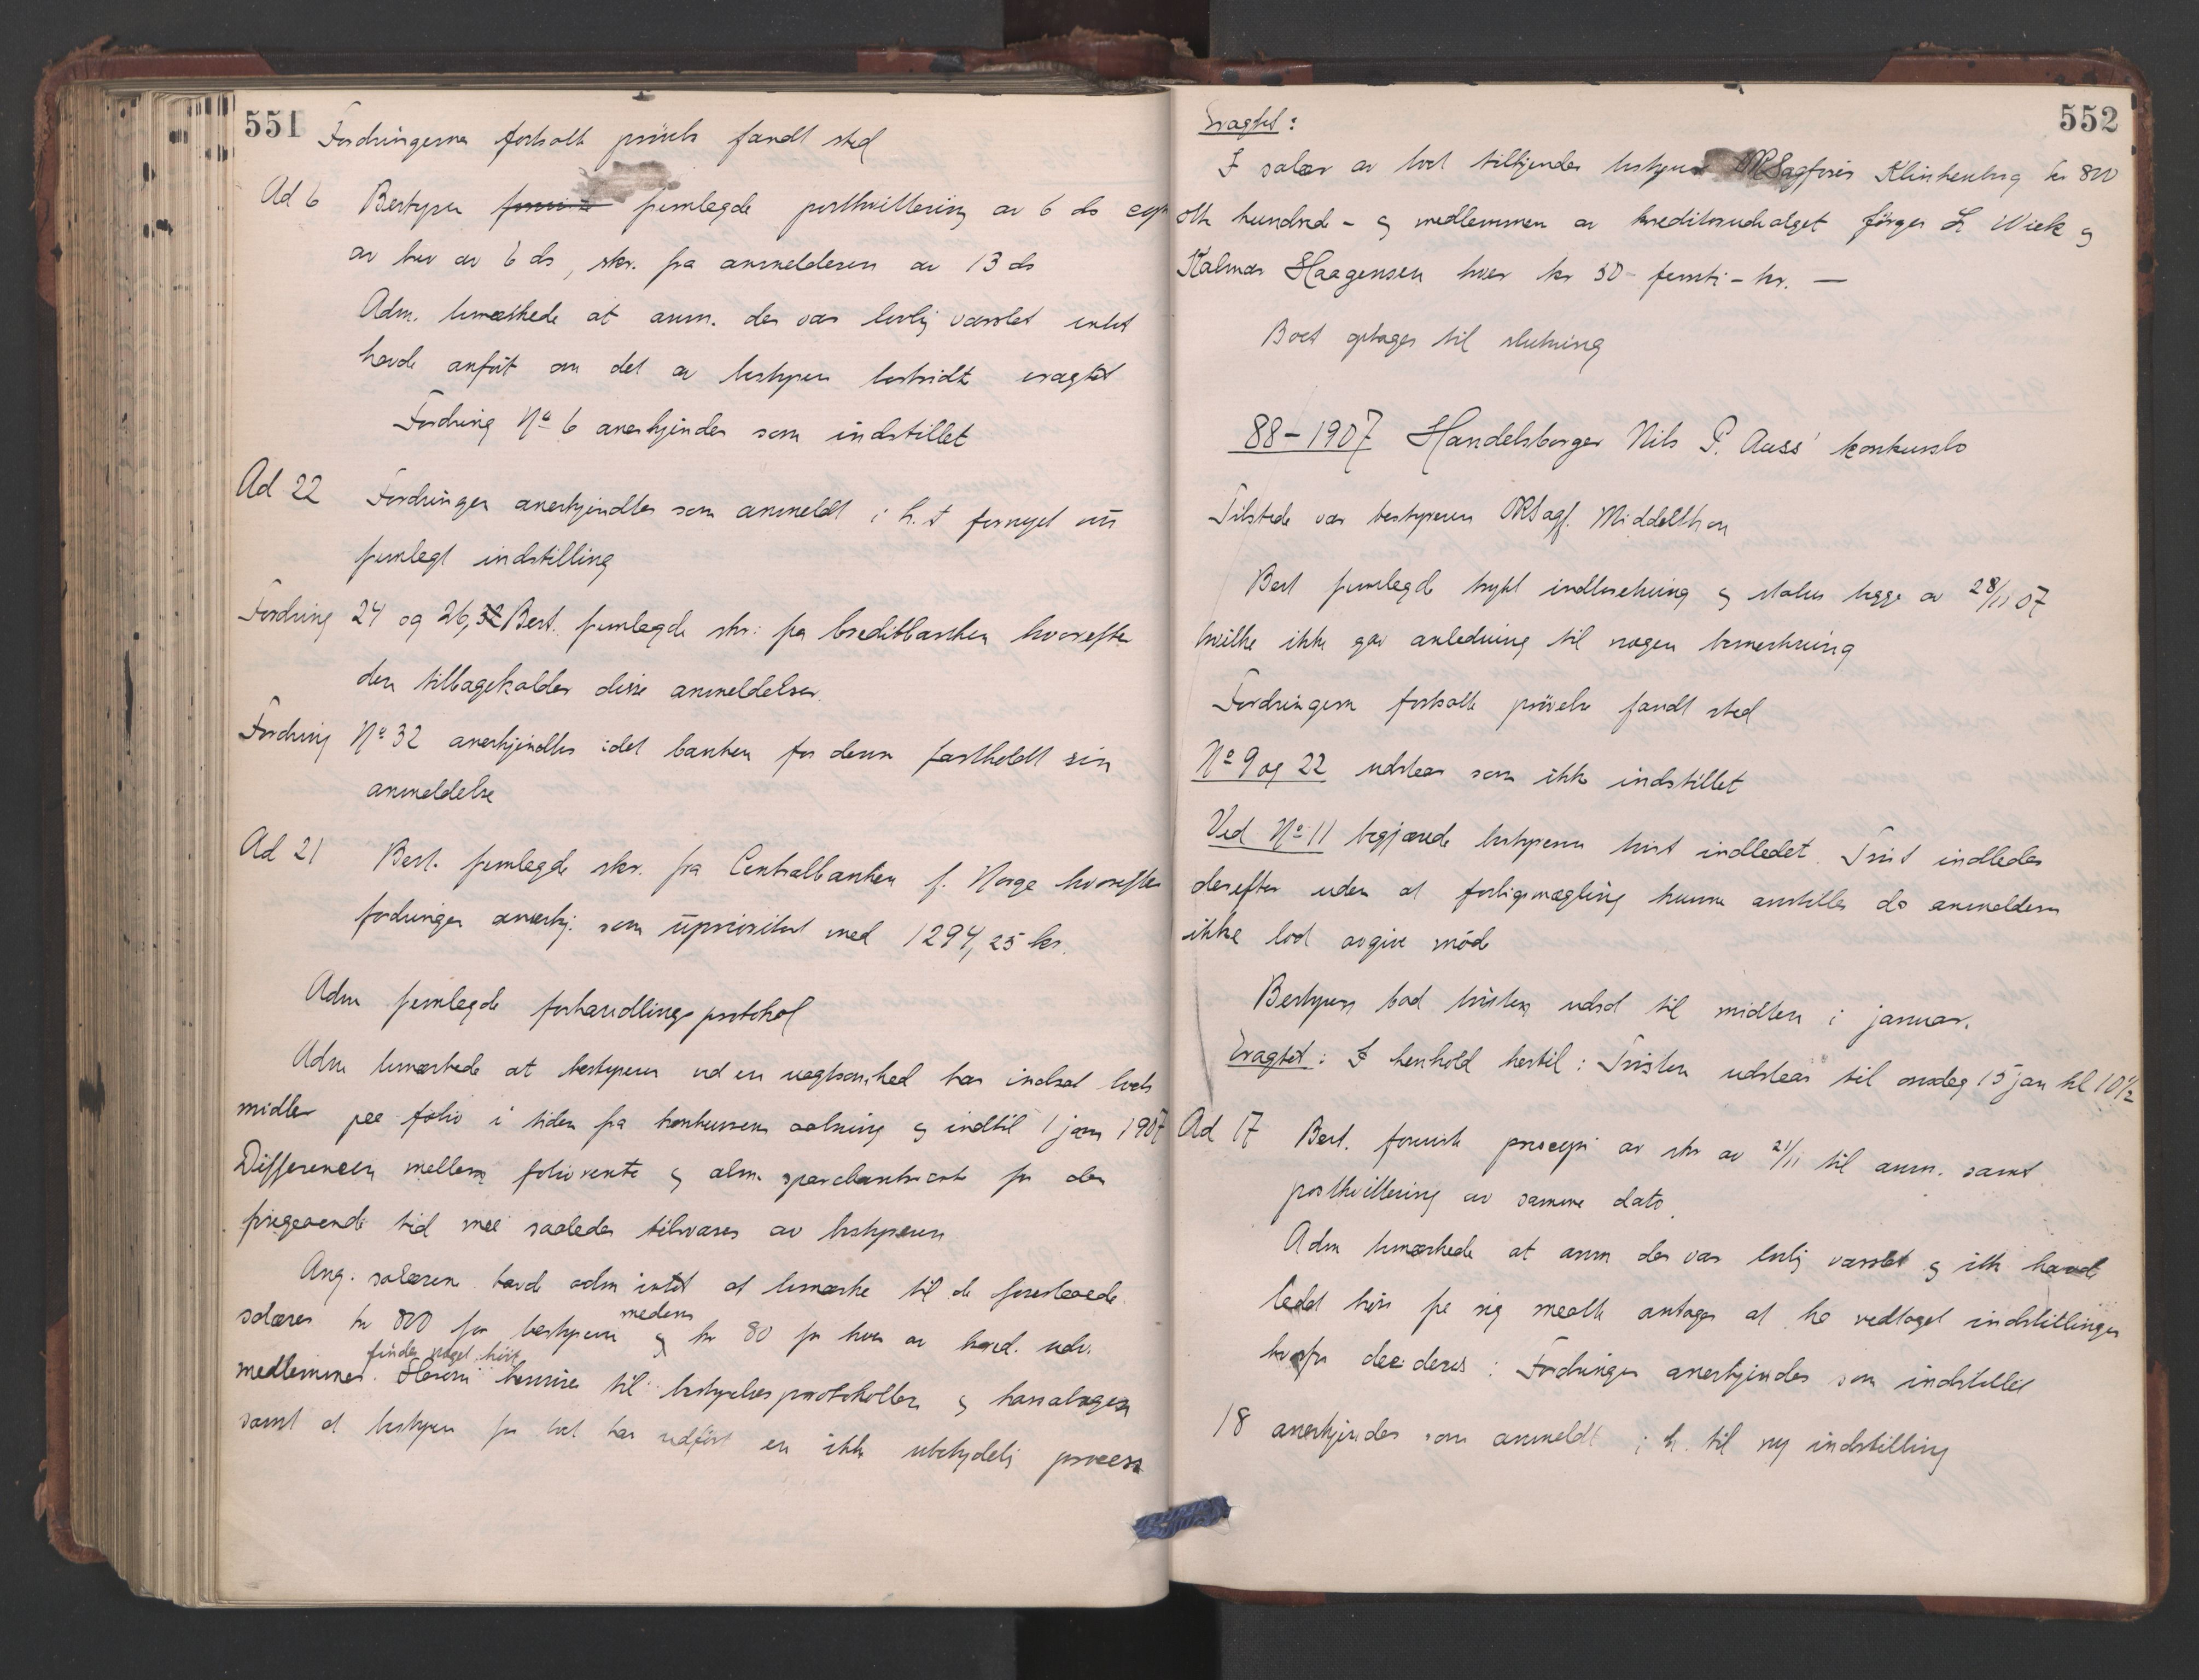 551
Fordringerne fortsatte prövelse fandt sted
Ad 6 Bestyren fremlegde postkvittering av 6 ds copi
av brev av 6 ds, skr. fra anmelderen av 13 ds
Adm. bemærkede at anm. der var lovlig varslet intet
havde anfört om det av bestyren bestridte eragtet
Fordring No 6 anerkjendes som indstillet
Ad 22 Fordringen anerkjendtes som anmeldt i h. t fornyet nu
fremlegt indstilling
Fordring 24 og 26, Best. fremlegde skr: fra Creditbanken hvorefter
den tilbagekalder disse anmeldelser.
Fordring No 32 anerkjendtes idet banken for denne fastholdt sin
anmeldelse
Ad 21 Best. fremlegde skr. fra Centralbanken f. Norge hvorefter
fordringen anerkj: som uprioritert med 1294,25 kr.
Adm fremlegde forhandlingsprotokol
Adm bemærkede at bestyreren ved en uagtsomhed har indsat boets
midler paa folio i tiden fra konkursens aabning og indtil 1 jan 1907
Differencen mellem foliorente og alm. sparebankrente for den
foregaaende tid maa saaledes tilsvares av bestyreren
Ang. salæren havde adm intet at bemærke til de foreslaaede
salærer kr 800 for bestyren og medens kr 80 for hver av kred. udv.
medlemmer findes noget höit. Herom henvises til bestyrelsesprotokollen og kassabogen
samt at bestyren for boet har udfört en ikke ubetydelig process
552
Eragtet:
I salær av boet tilkjendes bestyreren ORSagförer Klinkenberg kr 800
otte hundrede - og medlemmene av kreditorudvalget Jörgen L Wiek og
Kalmar Haagensen hver kr 50 - femti - kr. —
Boet optages til slutning
88-1907 Handelsborger Nils P. Aass' konkursbo
Tilstede var bestyreren ORSagf. Middelthon
Best fremlegde trykt indberetning og status begge av 28/11 07
hvilke ikke gav anledning til nogen bemerkning
Fordringerne fortsatte prövelse fandt sted
No 9 og 22 udstaar som ikke indstillet
Ved No 11 begjærede bestyreren tvist indledet. Tvist indledes
derefter uden at forligsmægling kunne anstilles da anmelderen
ikke lod avgive möde
Bestyren bad tvisten udsat til midten i januar.
Eragtet: I henhold hertil: Tvisten udstaar til onsdag 15 jan kl 10 1/2
Ad 17 Best. foreviste prescopi av skr av 21/11 til anm. samt
postkvittering av samme dato.
Adm bemærkede at anm der var lovlig varslet og ikke havde
ladet höre fra sig maatte antages at ha vedtaget indstillingen
hvorfor decideres: Fordringen anerkjendes som indstillet
18 anerkjendes som anmeldt i h. til ny indstilling